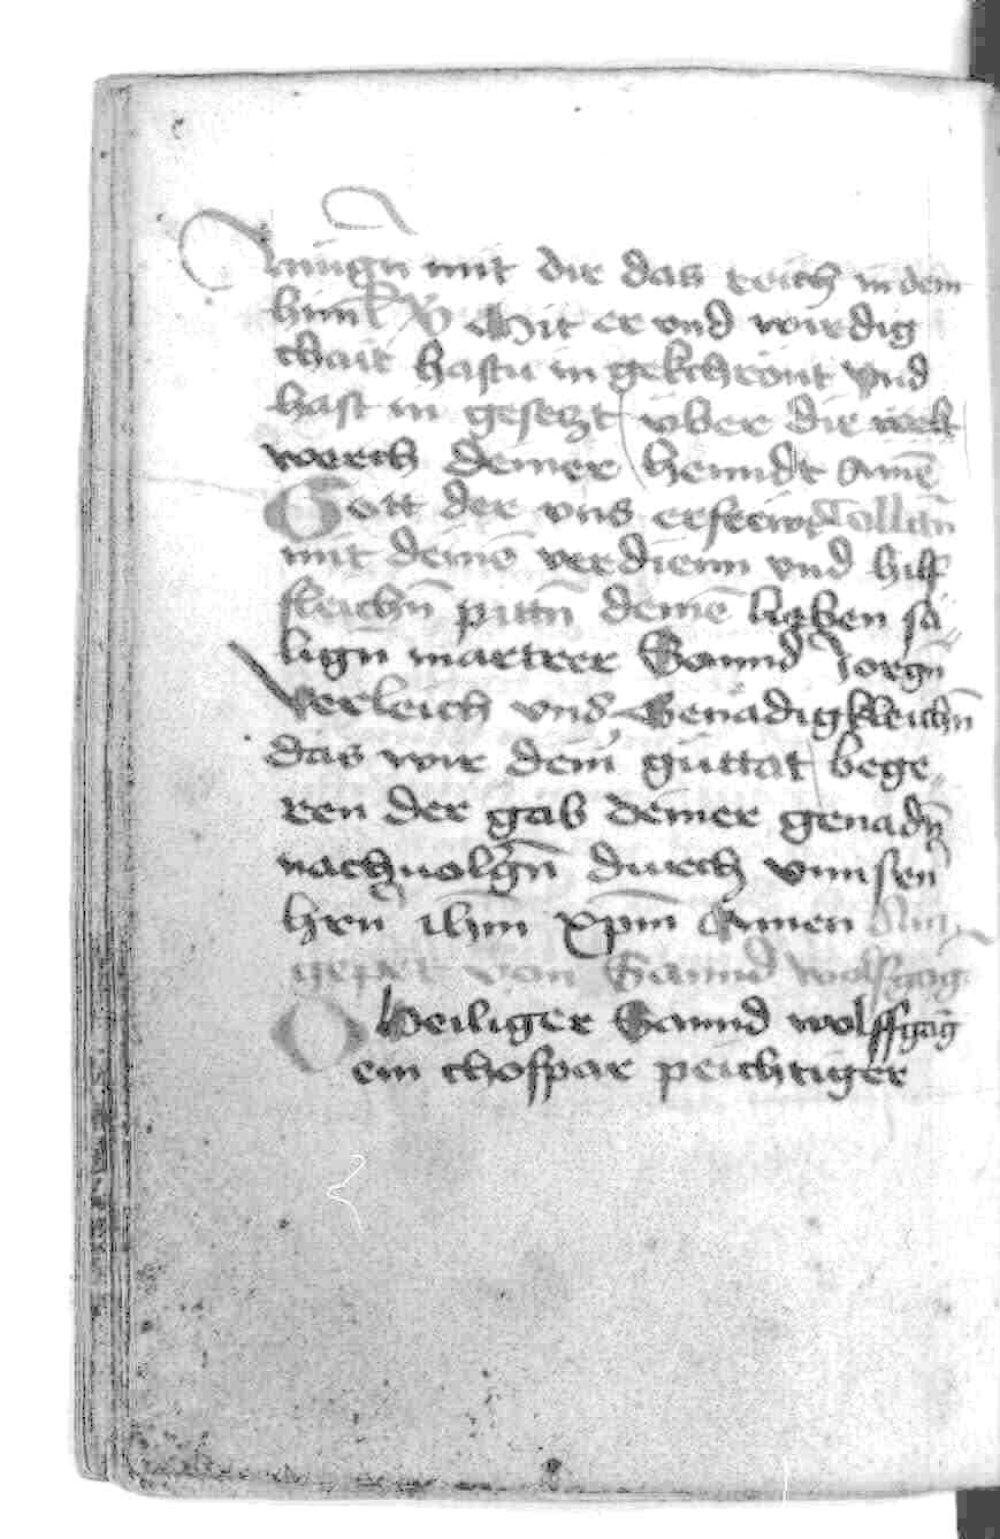 mit dir das reich in dem
himl Mit er vnd wirdig
chait hastu in gekchrönt vnd
hast in gesetzt über die
werch deiner henndt Amē
Gott der vns erfrewt Collān
mit deinē verdienn vnd hilf
fleichn̄ pittn̄ deinē lieben sä
lign̄ martrer Sannd Jorgn̄
verleich vns Genädigkleichn̄
das wir dein guttat bege
ren der gab deiner genadn̄
nachuolgn̄ durch vnnsen̄
hrn̄ ihm̄ xpm̄ Amen Ain
gepet von Sannd wolfgāg
O Heiliger Sannd wolffgāg
ein chospar peichtiger